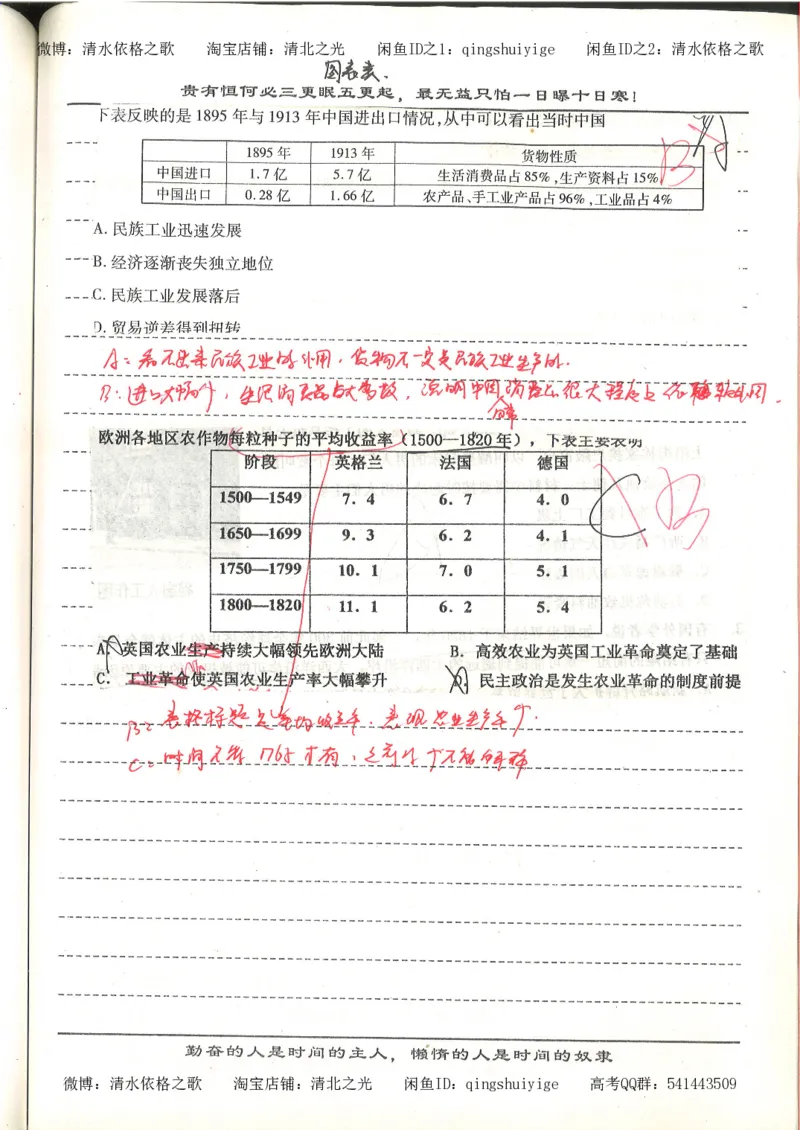 微博：清水依格之歌 淘宝店铺：清北之光 闲鱼ID之1：qingshuiyige 闲鱼ID之2：清水依格之歌
图表类.
贵有恒何必三更眠五更起，最无益只怕一日曝十日寒！
下表反映的是 1895 年与 1913 年中国进出口情况,从中可以看出当时中国
1895 年 1913 年 货物性质
中国进口 1.7 亿 5.7 亿 生活消费品占 85%,生产资料占 15%
中国出口 0.28 亿 1.66 亿 农产品、手工业产品占 96%,工业品占 4%
B
A. 民族工业迅速发展
B. 经济逐渐丧失独立地位
C. 民族工业发展落后
D. 贸易逆差得到扭转
A：看不出来民族工业的作用，货物不一定是民族工业生产的.
B：进口货物中，生活消费品占大多数，说明中国消费品很大程度上依赖
欧洲各地区农作物每粒种子的平均收益率（1500—1820 年），下表主要表明
阶段 英格兰 法国 德国
1500—1549 7. 4 6. 7 4. 0
1650—1699 9. 3 6. 2 4. 1
1750—1799 10. 1 7. 0 5. 1
1800—1820 11. 1 6. 2 5. 4
C B
A. 英国农业生产持续大幅领先欧洲大陆 B. 高效农业为英国工业革命奠定了基础
C. 工业革命使英国农业生产率大幅攀升 D. 民主政治是发生农业革命的制度前提
B：表格标题是平均收益率，表现农业生产率个.
C：时间不符 1765 才有，之前的个不能解释
勤奋的人是时间的主人，懒惰的人是时间的奴隶
微博：清水依格之歌 淘宝店铺：清北之光 闲鱼ID：qingshuiyige 高考QQ群：541443509